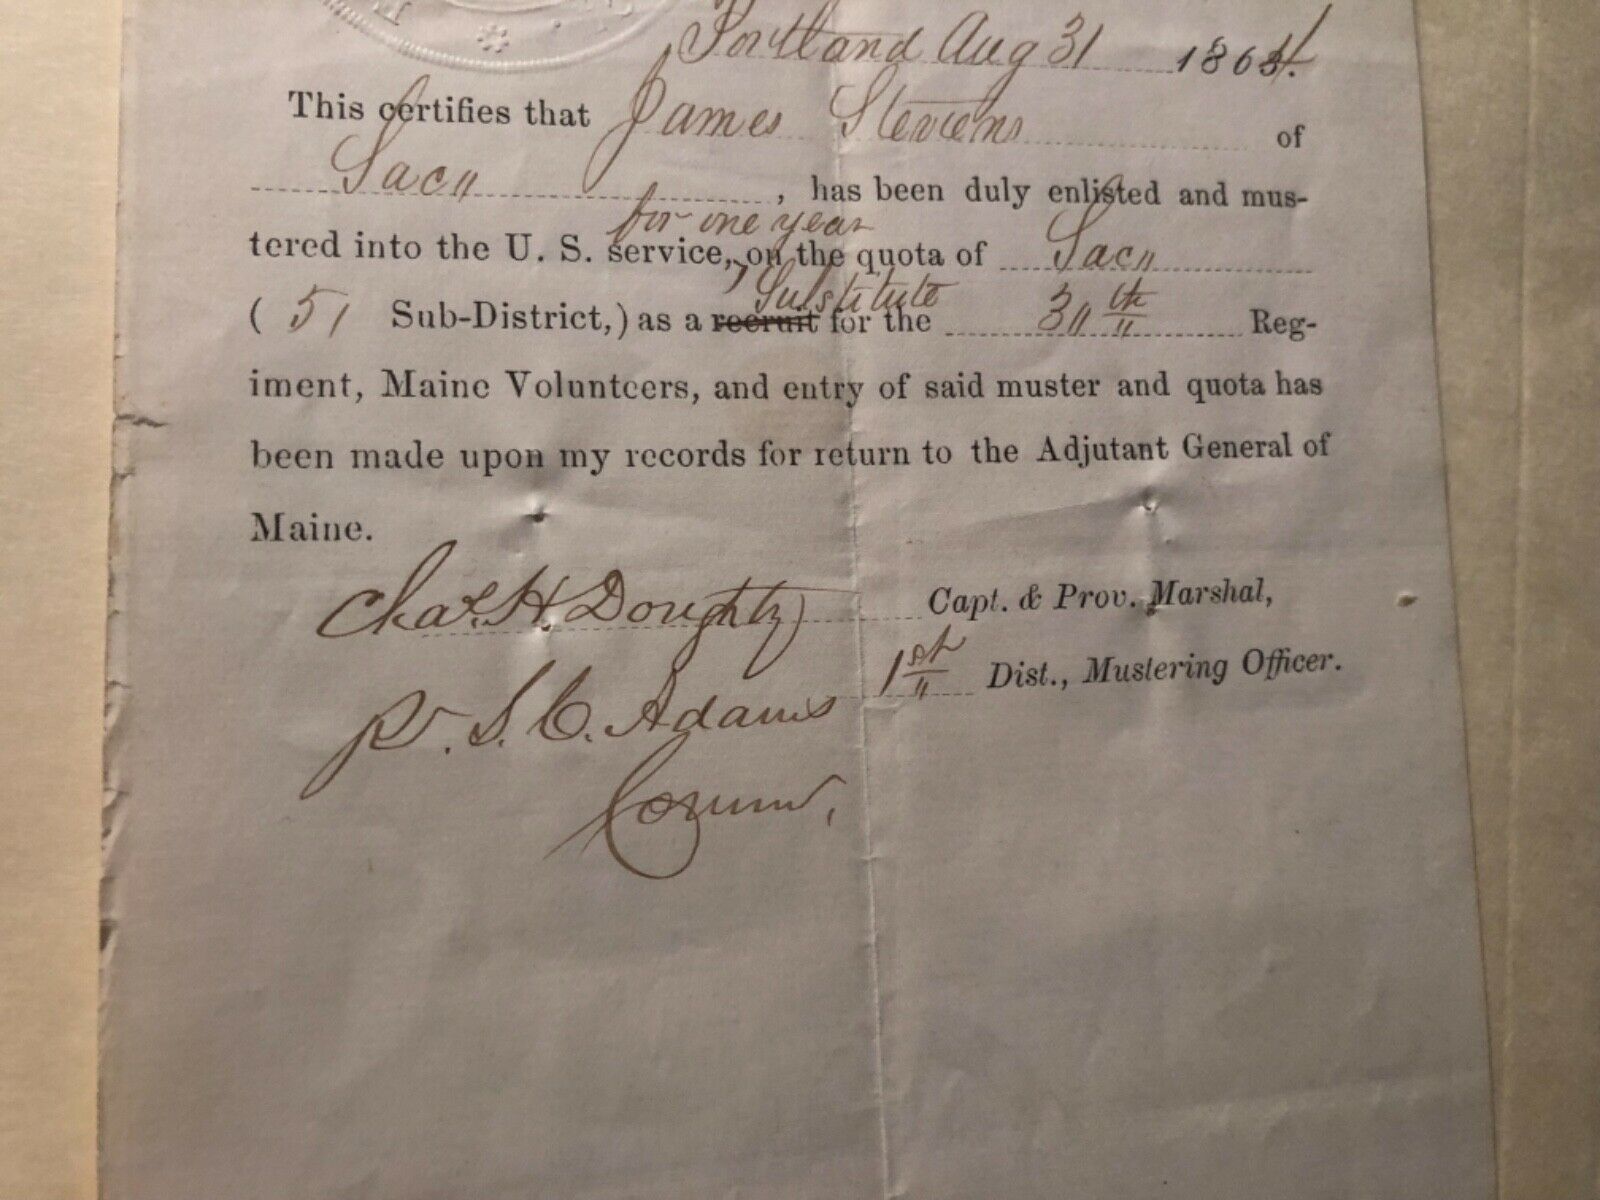 Portland Aug 31 1864.
This certifies that James Stevens of
Saco, has been duly enlisted and mus-
for one year
tered into the U. S. service, on the quota of Saco
Substitute
( 51 Sub-District,) as a recruit for the 30th Reg-
iment, Maine Volunteers, and entry of said muster and quota has
been made upon my records for return to the Adjutant General of
Maine.
Chas. H. Doughty Capt. & Prov. Marshal,
1st Dist., Mustering Officer.
pr. S. C. Adams